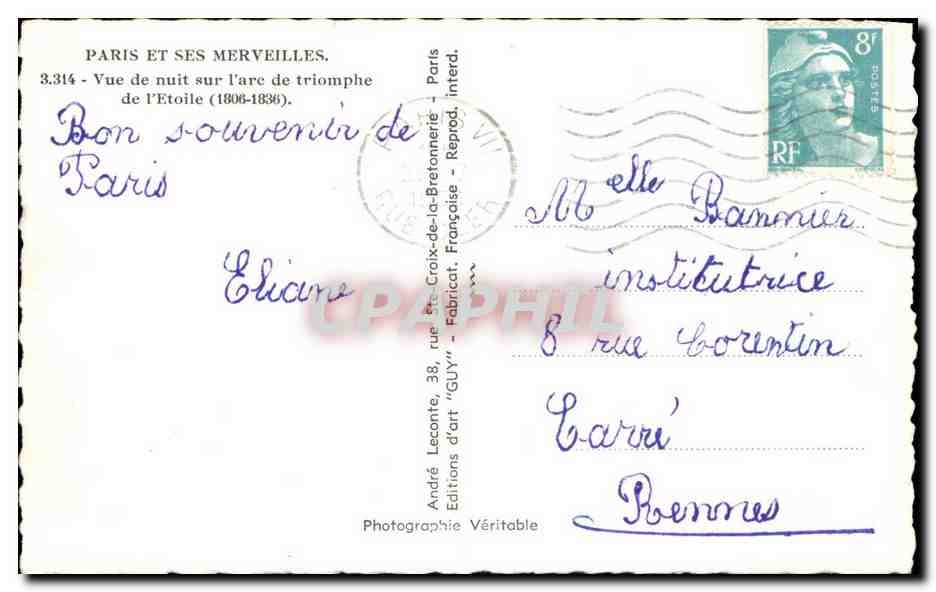 PARIS ET SES MERVEILLES.
3.314 - Vue de nuit sur l'arc de triomphe
de l'Etoile (1806-1836).
Bon souvenir de
Paris
Eliane
André Leconte, 38, rue Ste-Croix-de-la-Bretonnerie - Paris
Editions d'art "GUY" - Fabricat. Française - Reprod. interd.
Photographie Véritable
8F
POSTES
RF
Melle Bannier
institutrice
8 rue Corentin
Carré
Rennes
CPAPHIL